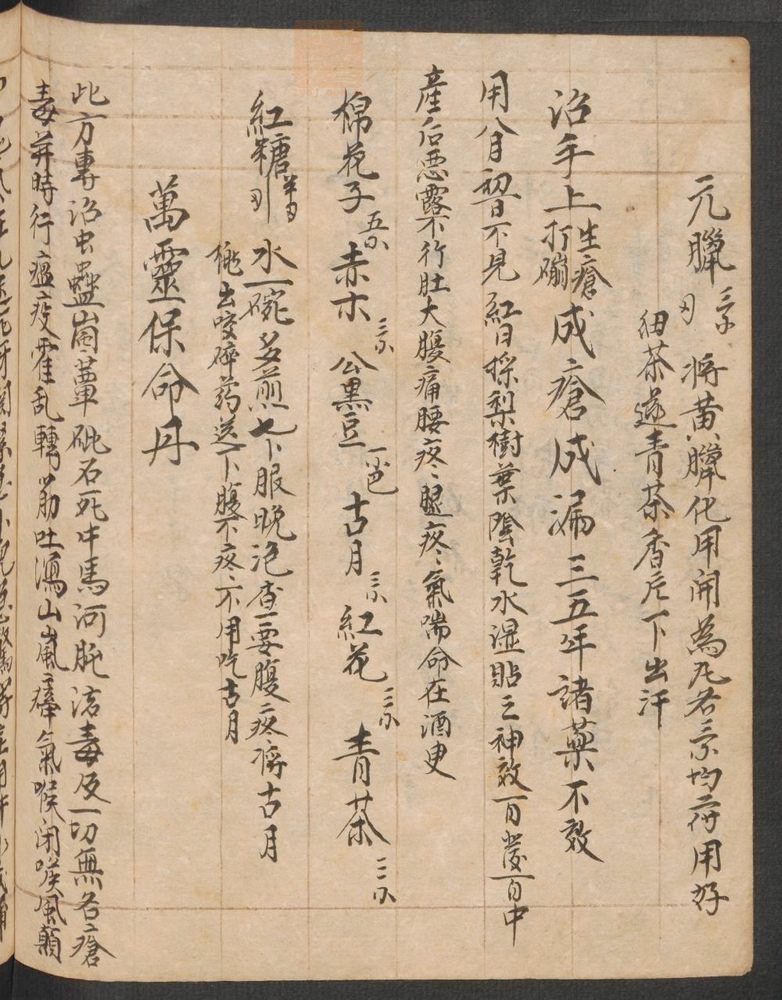 元臘 三分 將黃臘化用開為丸名三分均二付用好
細茶遂青茶香尼下出汗
治手上生瘡打磞成瘡成漏三五年諸藥不效
用八月初一日不見紅日採梨樹葉陰乾水湿貼之神效百發百中
產后惡露不行肚大腹痛腰疼腿疼氣喘命在酒臾
棉花子 五分 赤木 三分 公黑豆 一包 古月 三分 紅花 三分 青茶 三分
紅糖 半 水一碗多煎七卜服晚泡查一要腹疼將古月
挑出咬碎药送下腹不疼不用吃古月
萬靈保命丹
此方專治虫蠱菌蕈砒石死牛馬河肫諸毒及一切無名瘡
毒并時行瘟疫霍乱轉筋吐瀉山嵐瘴氣喉闭喉風顛